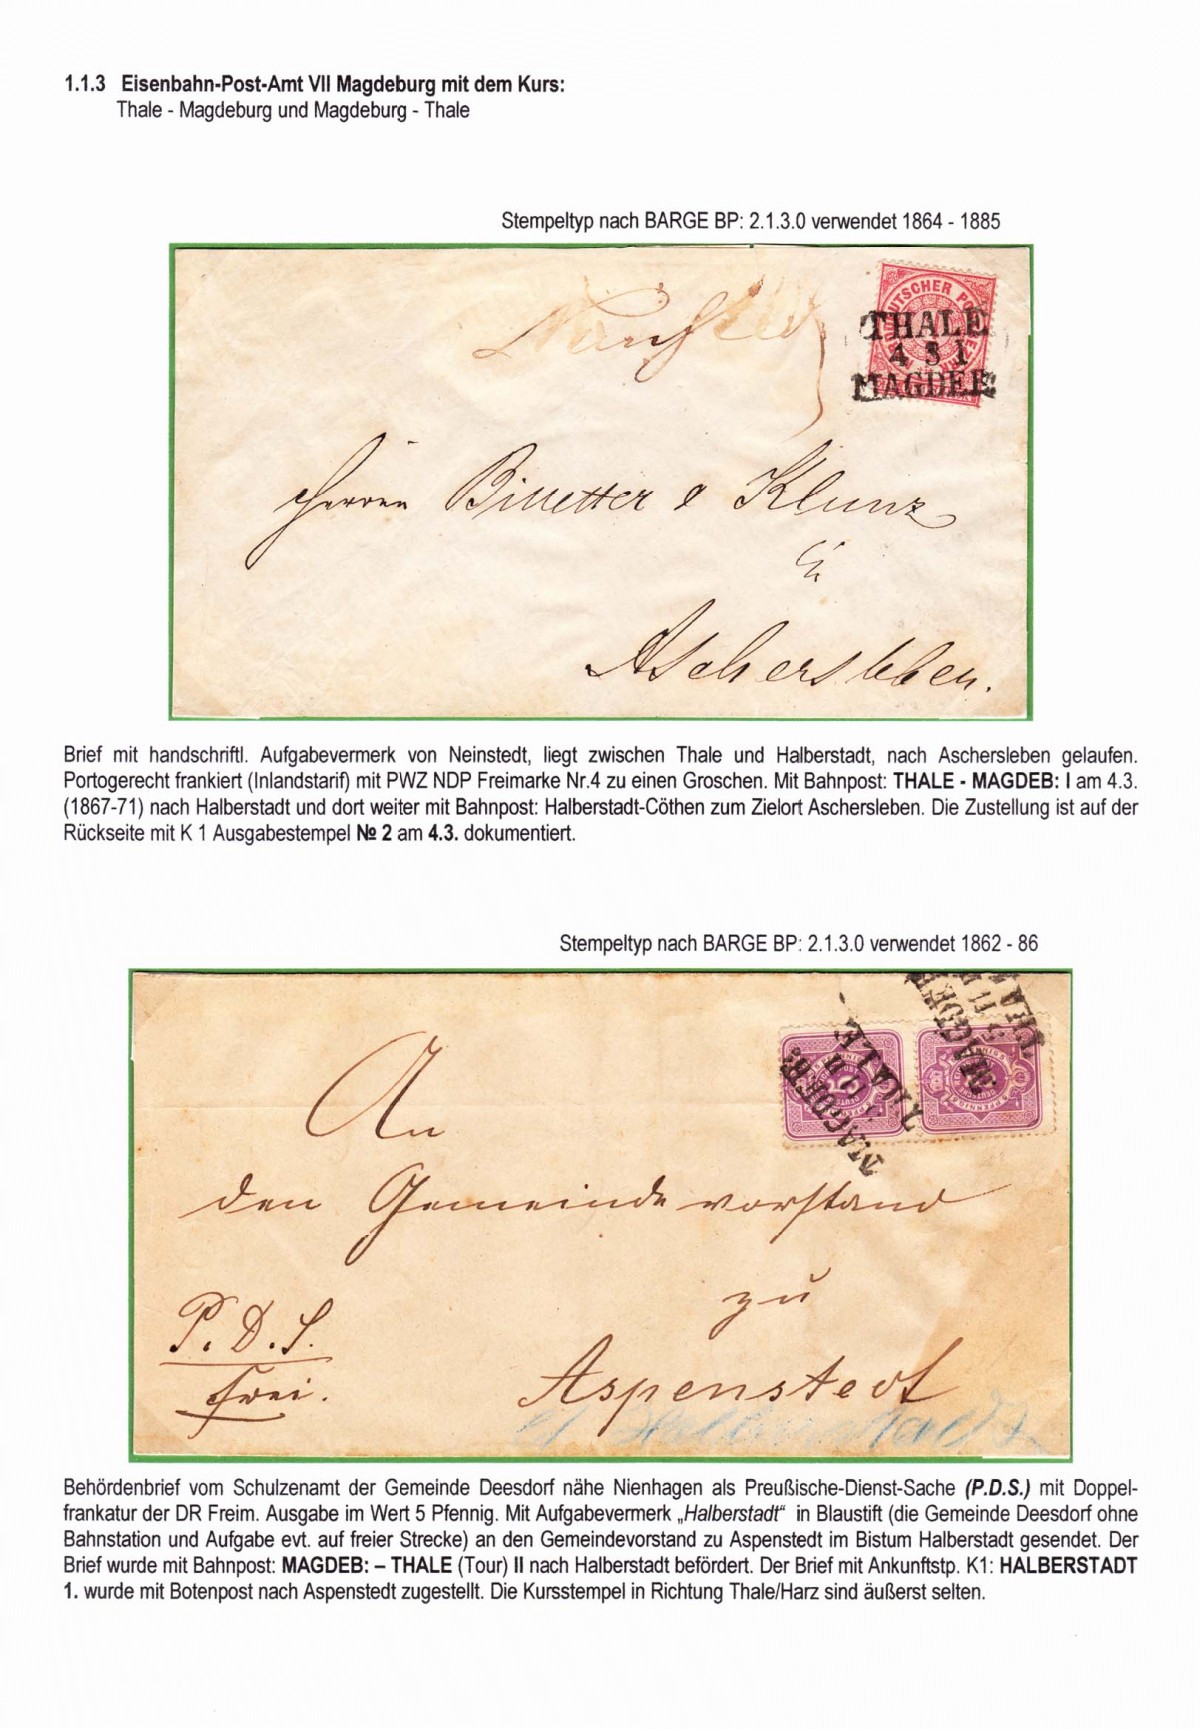 1.1.3 Eisenbahn-Post-Amt VII Magdeburg mit dem Kurs:
Thale - Magdeburg und Magdeburg - Thale
Stempeltyp nach BARGE BP: 2.1.3.0 verwendet 1864 - 1885
THALE
4 3 I
MAGDEB:
Herren Billetter & Klunz
Aschersleben.
Brief mit handschriftl. Aufgabevermerk von Neinstedt, liegt zwischen Thale und Halberstadt, nach Aschersleben gelaufen.
Portogerecht frankiert (Inlandstarif) mit PWZ NDP Freimarke Nr.4 zu einen Groschen. Mit Bahnpost: THALE - MAGDEB: I am 4.3.
(1867-71) nach Halberstadt und dort weiter mit Bahnpost: Halberstadt-Cöthen zum Zielort Aschersleben. Die Zustellung ist auf der
Rückseite mit K 1 Ausgabestempel № 2 am 4.3. dokumentiert.
Stempeltyp nach BARGE BP: 2.1.3.0 verwendet 1862 - 86
MAGDEB:
THALE
MAGDEB:
THALE
An
den Gemeindevorstand
zu
P. D. S.
frei.
Aspenstedt
Behördenbrief vom Schulzenamt der Gemeinde Deesdorf nähe Nienhagen als Preußische-Dienst-Sache (P.D.S.) mit Doppel-
frankatur der DR Freim. Ausgabe im Wert 5 Pfennig. Mit Aufgabevermerk „Halberstadt“ in Blaustift (die Gemeinde Deesdorf ohne
Bahnstation und Aufgabe evt. auf freier Strecke) an den Gemeindevorstand zu Aspenstedt im Bistum Halberstadt gesendet. Der
Brief wurde mit Bahnpost: MAGDEB: – THALE (Tour) II nach Halberstadt befördert. Der Brief mit Ankunftstp. K1: HALBERSTADT
1. wurde mit Botenpost nach Aspenstedt zugestellt. Die Kursstempel in Richtung Thale/Harz sind äußerst selten.